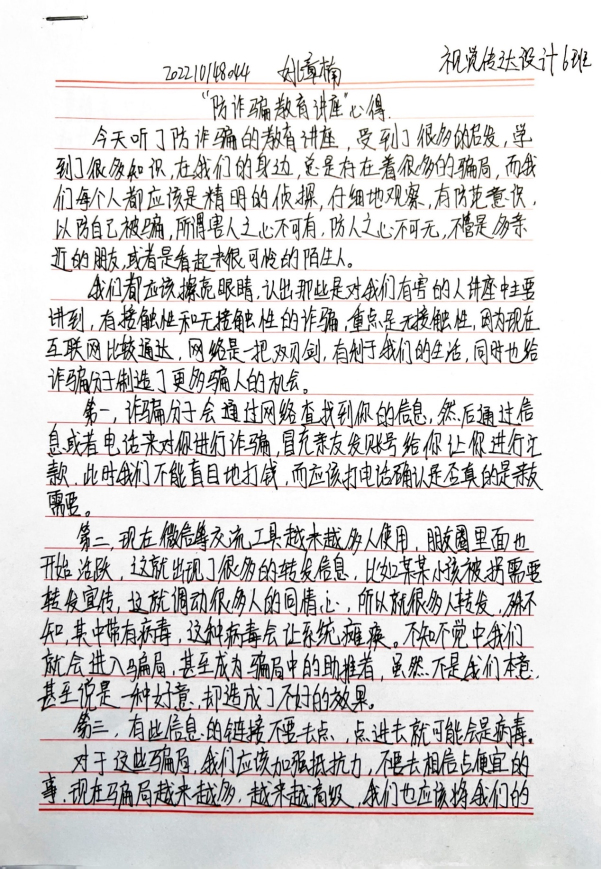 视觉传达设计6班
202210148044 姚璋楠
“防诈骗教育讲座”心得.
今天听了防诈骗的教育讲座，受到了很多的启发，学
到了很多知识，在我们的身边，总是存在着很多的骗局，而我
们每个人都应该是精明的侦探，仔细地观察，有防范意识，
以防自己被骗，所谓害人之心不可有，防人之心不可无，不管是多亲
近的朋友，或者是看起来很可怜的陌生人。
我们都应该擦亮眼睛，认出那些是对我们有害的人讲座中主要
讲到，有接触性和无接触性的诈骗，重点是无接触性，因为现在
互联网比较通达，网络是一把双刃剑，有利于我们的生活，同时也给
诈骗分子制造了更多骗人的机会。
第一，诈骗分子会通过网络查找到你的信息，然后通过信
息或者电话来对你进行诈骗，冒充亲友发账号给你让你进行汇
款，此时我们不能盲目地打钱，而应该打电话确认是否真的是亲友
需要。
第二，现在微信等交流工具越来越多人使用，朋友圈里面也
开始活跃，这就出现了很多的转发信息，比如某某小孩被拐需要
转发宣传，这就调动很多人的同情心，所以就很多人转发，殊不
知，其中带有病毒，这种病毒会让系统瘫痪。不知不觉中我们
就会进入骗局，甚至成为骗局中的助推者，虽然不是我们本意，
甚至说是一种好意，却造成了不好的效果。
第三，有些信息的链接不要去点，点进去就可能会是病毒。
对于这些骗局，我们应该加强抵抗力，不要去相信占便宜的
事，现在骗局越来越多，越来越高级，我们也应该将我们的